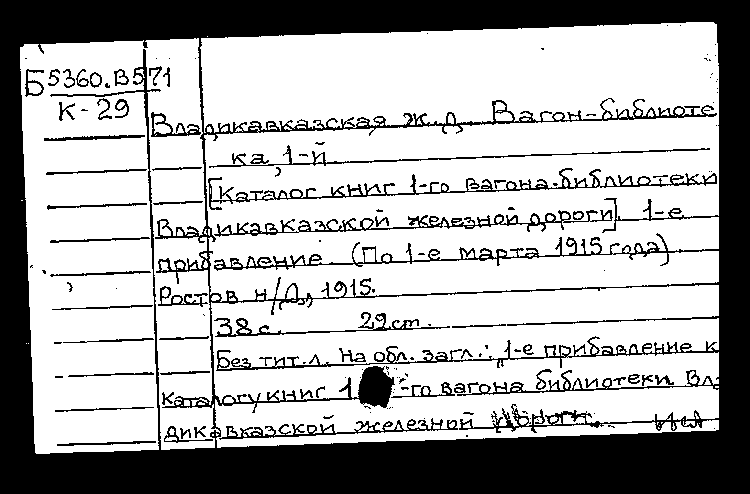 Б 5360.В571
К-29
Владикавказская ж.д. Вагон-библиоте
ка, 1-й.
[Каталог книг 1-го вагона-библиотеки
Владикавказской железной дороги]. 1-е
прибавление. (По 1-е марта 1915 года).
Ростов н/Д., 1915.
38 с. 29 см.
Без тит.л. На обл. загл.: "1-е прибавление к
каталогу книг 1 -го вагона библиотеки Вла
дикавказской железной дороги.